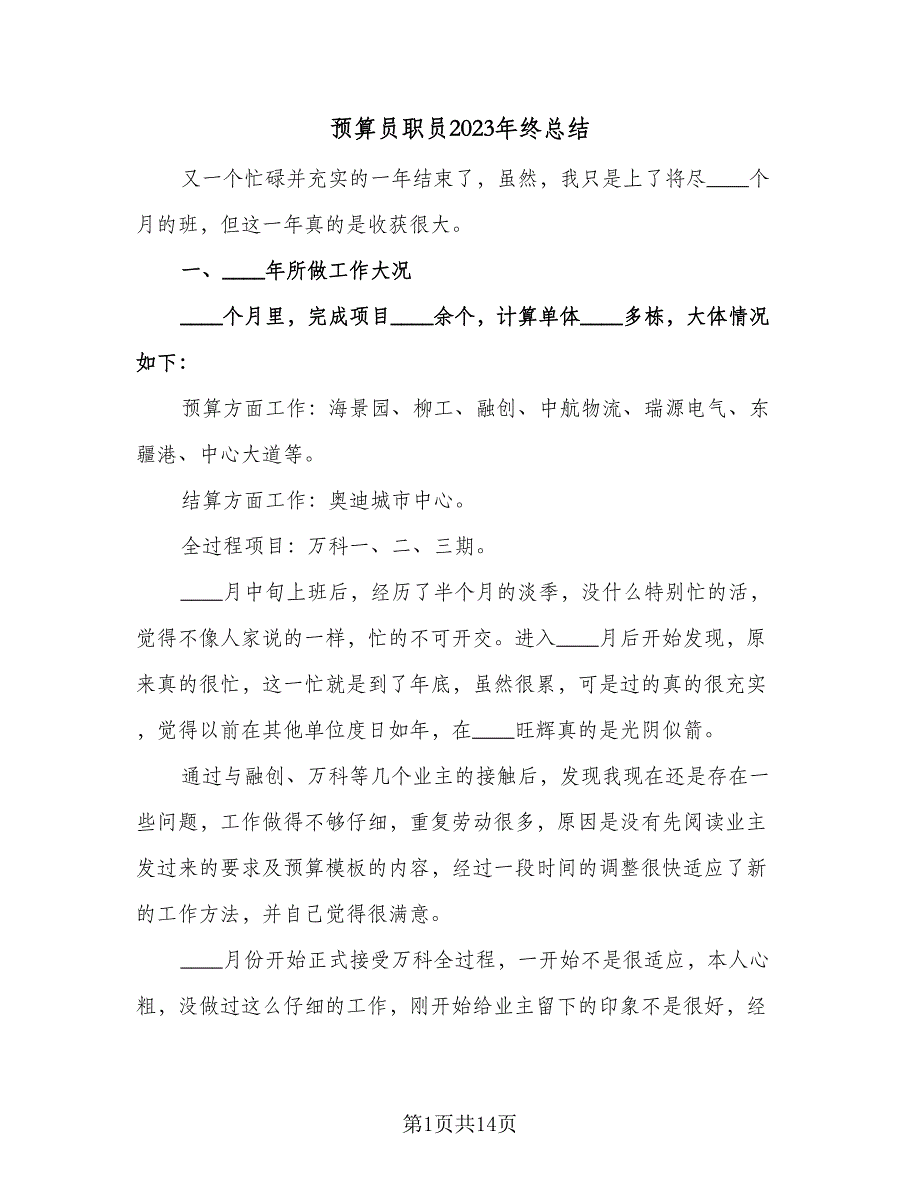 预算员职员2023年终总结
又一个忙碌并充实的一年结束了，虽然，我只是上了将尽____个
月的班，但这一年真的是收获很大。
一、____年所做工作大况
____个月里，完成项目____余个，计算单体____多栋，大体情况
如下：
预算方面工作：海景园、柳工、融创、中航物流、瑞源电气、东
疆港、中心大道等。
结算方面工作：奥迪城市中心。
全过程项目：万科一、二、三期。
____月中旬上班后，经历了半个月的淡季，没什么特别忙的活，
觉得不像人家说的一样，忙的不可开交。进入____月后开始发现，原
来真的很忙，这一忙就是到了年底，虽然很累，可是过的真的很充实
，觉得以前在其他单位度日如年，在____旺辉真的是光阴似箭。
通过与融创、万科等几个业主的接触后，发现我现在还是存在一
些问题，工作做得不够仔细，重复劳动很多，原因是没有先阅读业主
发过来的要求及预算模板的内容，经过一段时间的调整很快适应了新
的工作方法，并自己觉得很满意。
____月份开始正式接受万科全过程，一开始不是很适应，本人心
粗，没做过这么仔细的工作，刚开始给业主留下的印象不是很好，经
第1页共14页